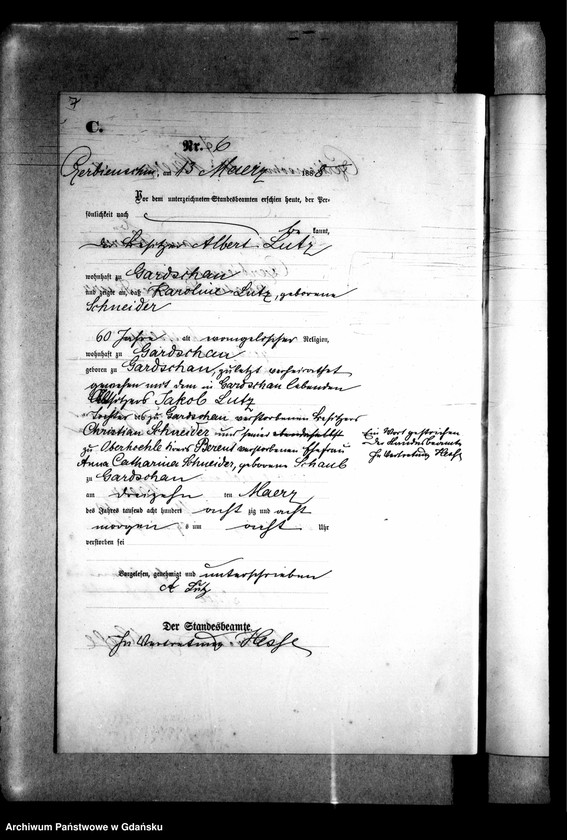 7
C.
Nr. 6
am 13 Maerz 1888
Vor dem unterzeichneten Standesbeamten erschien heute, der Per-
sönlichkeit nach
be kannt,
der Besitzer Albert Lutz
wohnhaft zu Gardschau
und zeigte an, daß Karoline Lutz, geborene
Schneider
60 Jahre alt evangelischer Religion,
wohnhaft zu Gardschau
geboren zu Gardschau, zuletzt verheirathet
gewesen mit dem in Gardschau lebenden
Jakob Lutz
Tochter des zu Gardschau verstorbenen Besitzers
Christian Schneider und seiner
zu Kreis Berent verstorbenen Ehefrau
Anna Catharina Schneider, geborene Schaub
zu Gardschau
am dreizehn ten Maerz
des Jahres tausend acht hundert acht zig und acht
morgen s um acht Uhr
verstorben sei
Ein Wort gestrichen
Der Standesbeamte
In Vertretung Hesse
Vorgelesen, genehmigt und unterschrieben
A Lutz
Der Standesbeamte.
In Vertretung Hesse
Archiwum Państwowe w Gdańsku